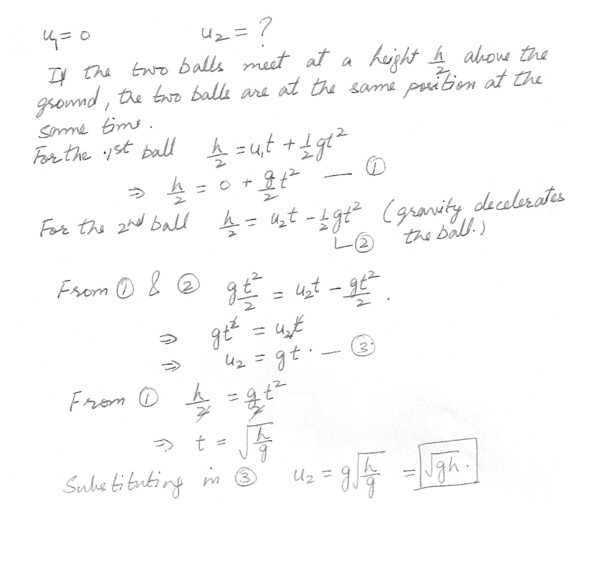 u₁ = 0 u₂ = ?
If the two balls meet at a height h/2 above the
ground, the two balls are at the same position at the
same time.
For the 1st ball h/2 = u₁t + ½gt²
⇒ h/2 = 0 + g/2 t² — ①
For the 2nd ball h/2 = u₂t - ½gt² (gravity decelerates
②   the ball.)
From ① & ② gt²/2 = u₂t - gt²/2.
⇒ gt² = u₂t
⇒ u₂ = gt. — ③
From ① h/2 = g/2 t²
⇒ t = √(h/g)
Substituting in ③ u₂ = g√(h/g) = √gh.